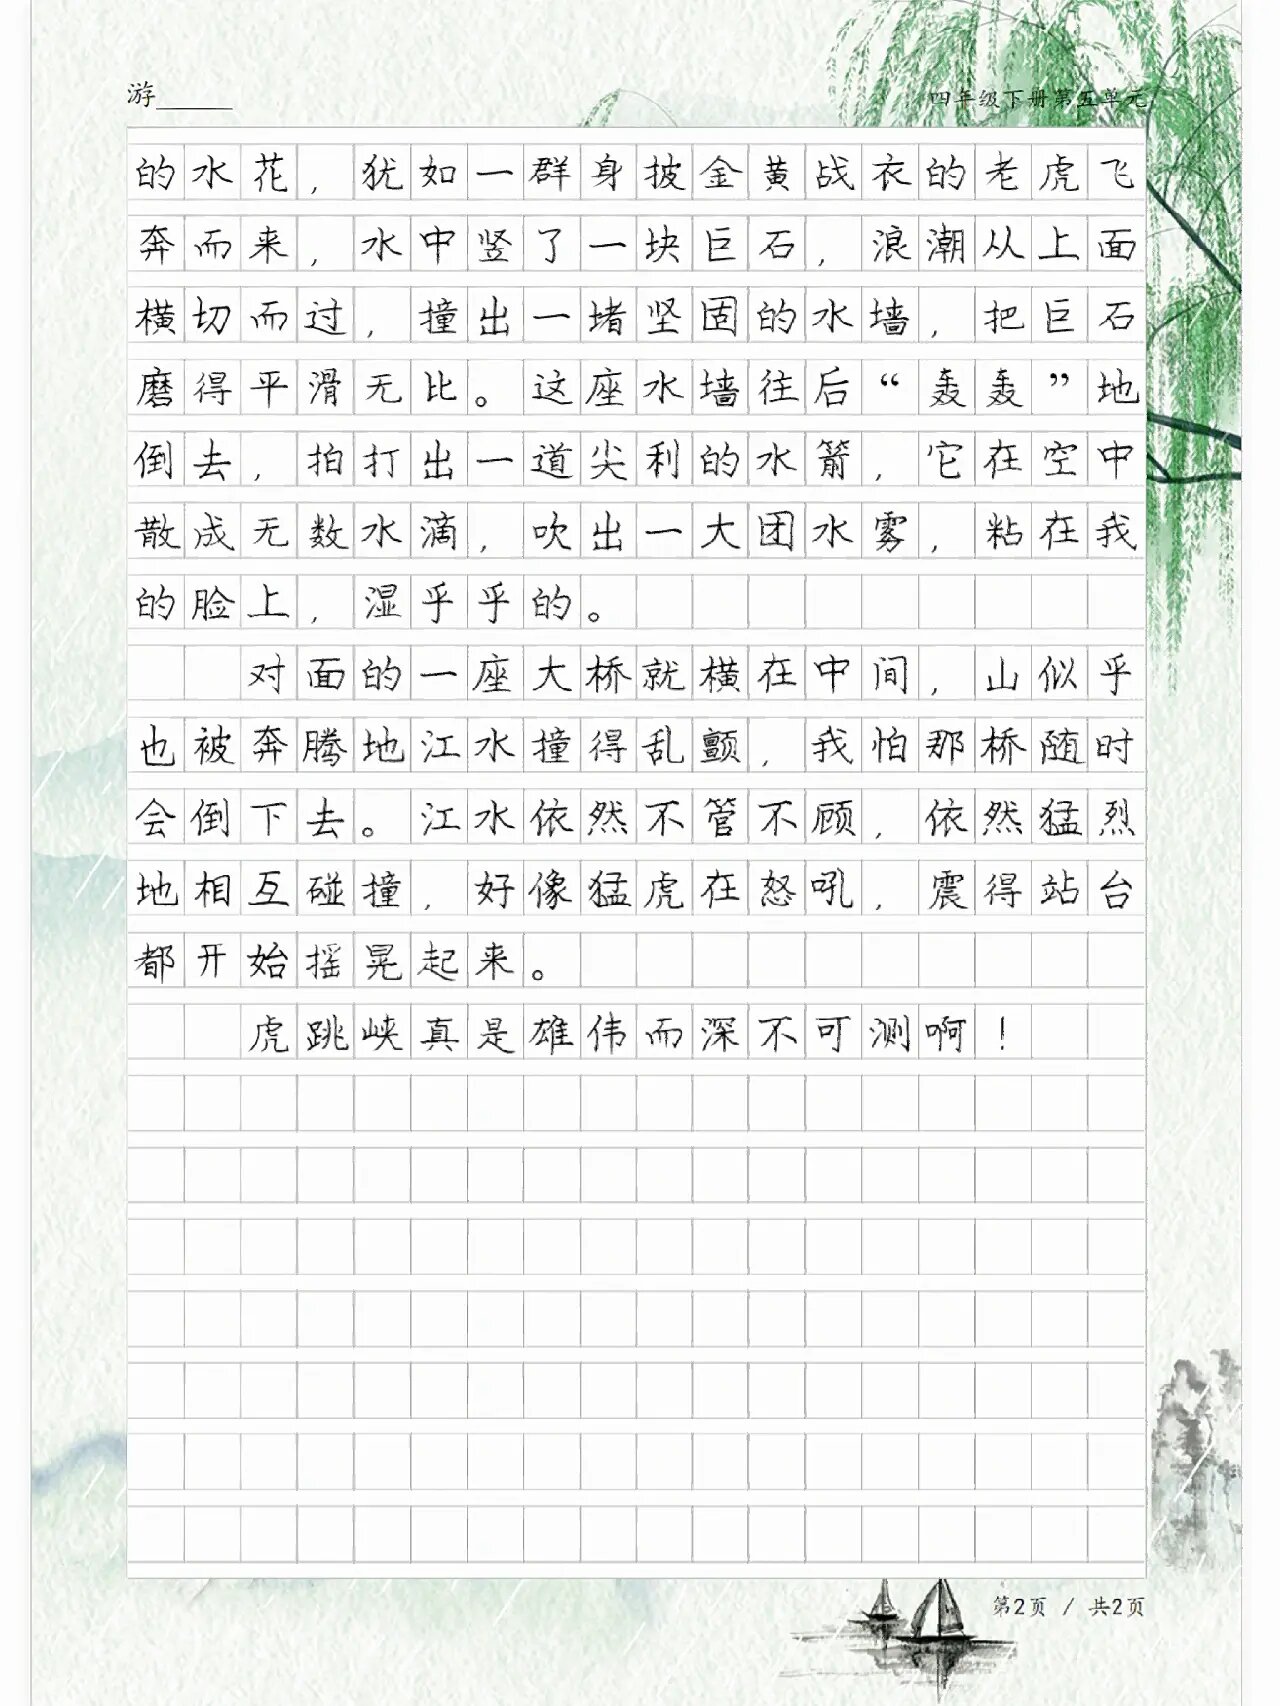 游______
四年级下册第五单元
的水花，犹如一群身披金黄战衣的老虎飞
奔而来，水中竖了一块巨石，浪潮从上面
横切而过，撞出一堵坚固的水墙，把巨石
磨得平滑无比。这座水墙往后“轰轰”地
倒去，拍打出一道尖利的水箭，它在空中
散成无数水滴，吹出一大团水雾，粘在我
的脸上，湿乎乎的。
对面的一座大桥就横在中间，山似乎
也被奔腾地江水撞得乱颤，我怕那桥随时
会倒下去。江水依然不管不顾，依然猛烈
地相互碰撞，好像猛虎在怒吼，震得站台
都开始摇晃起来。
虎跳峡真是雄伟而深不可测啊！
第2页 / 共2页